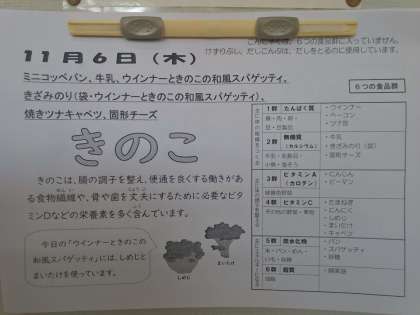 こんだては、６つの食品群に入っていません。
けずりぶし、だしこんぶは、だしをとるのに使用しています。
１１月６日（木）
ミニコッペパン、牛乳、ウインナーときのこの和風スパゲッティ、
きざみのり（袋・ウインナーときのこの和風スパゲッティ）、
焼きツナキャベツ、固形チーズ
きのこ
きのこは、腸の調子を整え、便通を良くする働きがあ
る食物繊維や、骨や歯を丈夫にするために必要なビタ
ミンDなどの栄養素を多く含んでいます。
今日の「ウインナーときのこの
和風スパゲッティ」には、しめじと
まいたけを使っています。
しめじ
まいたけ
６つの食品群
１群 たんぱく質
魚・肉・卵・
豆・豆製品
・ウインナー
・ベーコン
・ツナ缶
２群 無機質
（カルシウム）
牛乳・乳製品・
小魚・海そう
・牛乳
・きざみのり（袋）
・固形チーズ
３群 ビタミンA
（カロテン）
緑黄色野菜
・にんじん
・ピーマン
４群 ビタミンC
その他の野菜・果物
・たまねぎ
・にんにく
・しめじ
・まいたけ
・キャベツ
５群 炭水化物
米・パン・めん・
いも・砂糖
・パン
・スパゲッティ
・砂糖
６群 脂質
油脂